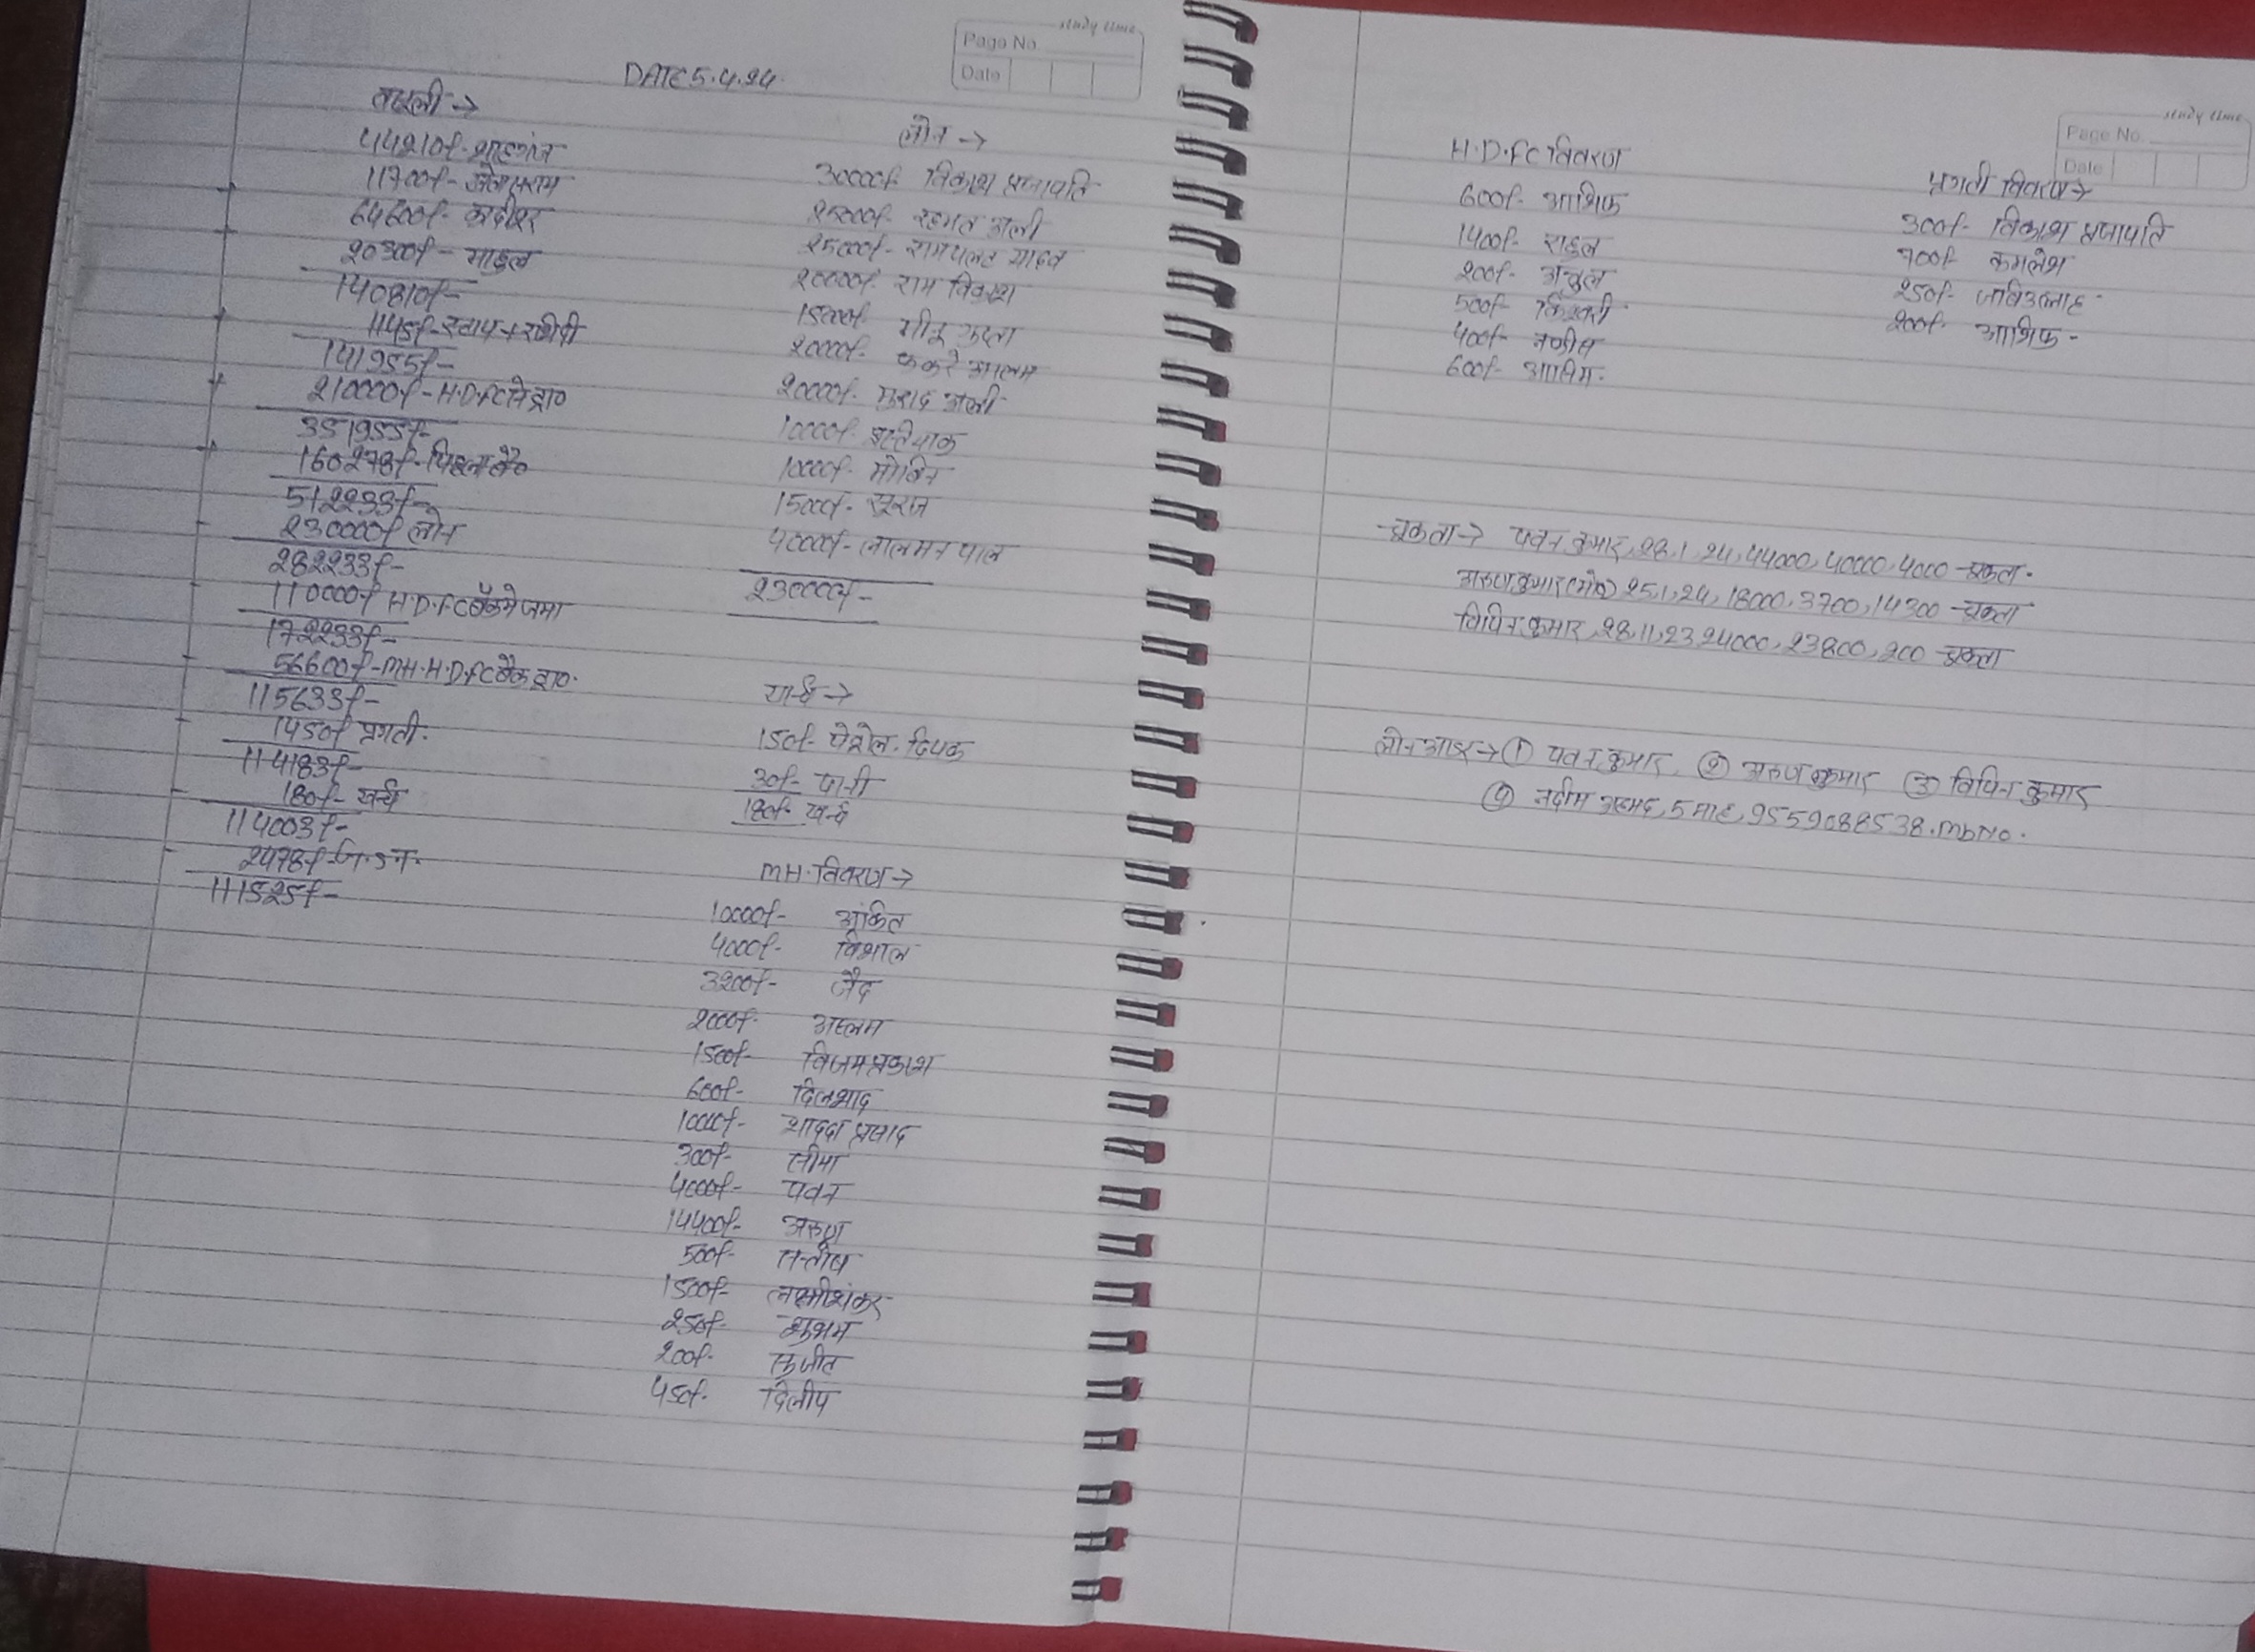 study time
Page No.
Date
DATE 5.4.24
वसूली →
44210/- शाहगंज
11700/-
64600/- कादीपुर
20300/- माहुल
140810/-
1145/- स्टाम्प +
141955/-
210000/- H.D.FC से ड्रा०
351955/-
160278/- पिछला बै०
512233/-
230000/- लोन
282233/-
110000/- H.D.FC बैंक मे जमा
172233/-
56600/- MH.H.D.FC बैंक ड्रा०
115633/-
1450/- प्रगती.
114183/-
180/- खर्च
114003/-
2478/-
111525/-
लोन →
30000/- विकाश प्रजापति
25000/- रहमत अली
25000/- रामपलट यादव
20000/- राम विकाश
15000/- मीनू गुप्ता
20000/- फकरे आलम
20000/- मुराद अली
10000/- इस्तियाक
10000/- मोबिन
15000/- सूरज
40000/- लालमन पाल
230000/-
खर्च →
150/- पेट्रोल. दिपक
30/- पानी
180/- खर्च
MH. विवरण →
10000/- अंकित
4000/- विशाल
3200/- जैद
2000/- असलम
1500/- विजय प्रकाश
600/- दिलशाद
10000/- शारदा प्रसाद
300/- सीमा
4000/- पवन
14400/- अरुण
500/- सन्तोष
1500/- लक्ष्मीशंकर
250/- शुभम
200/- सुजीत
450/- दिलीप
study time
Page No.
Date
H.D.FC विवरण
600/- आशिफ
1400/- राहुल
200/- अंचुल
500/- किश्वरी
400/- नफीस
600/- आसिम.
प्रगती विवरण →
300/- विकाश प्रजापति
700/- कमलेश
250/- जबिउल्लाह
200/- आशिफ -
चुकता → पवन कुमार, 28,1,24, 44000, 40000, 4000 - चुकता.
अरुण कुमार (मो०) 25,1,24, 18000, 3700, 14300 - चुकता
विपिन कुमार, 28,11,23, 24000, 23800, 200 - चुकता
लोन आडर → ① पवन कुमार, ② अरुण कुमार ③ विपिन कुमार
④ नदीम अहमद, 5 माह, 9559088538. mbNo.